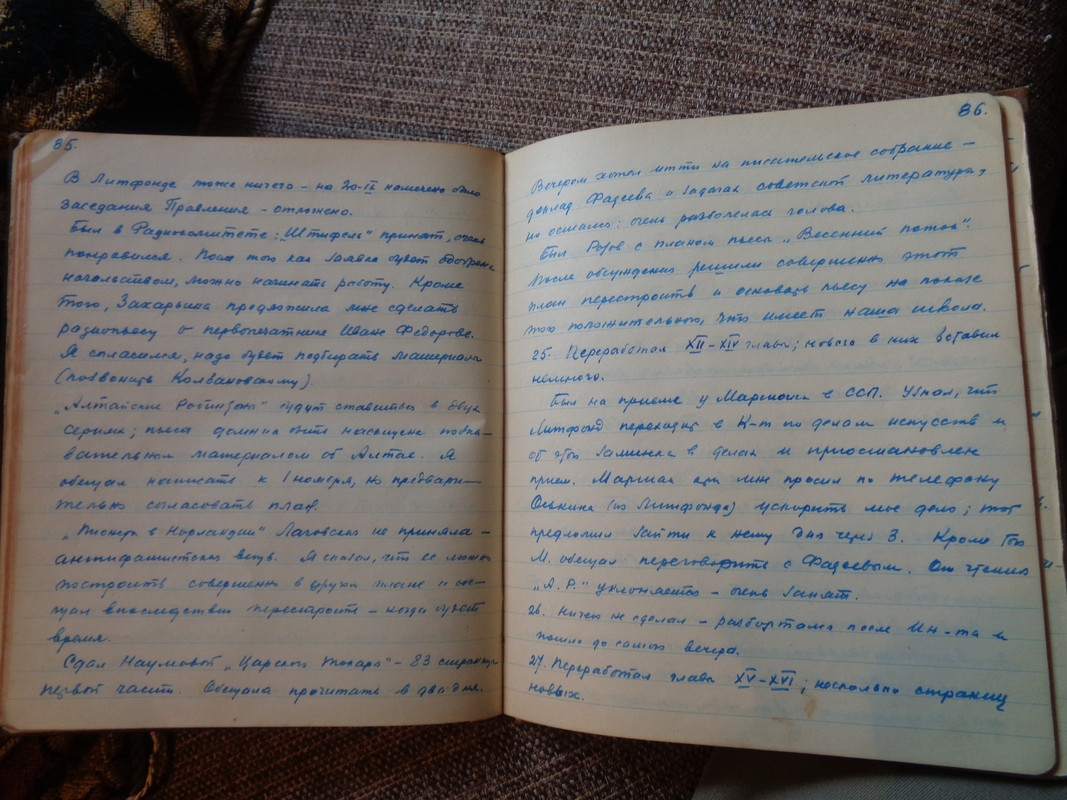 85.
В Литфонде тоже ничего – на 20-IX намечено было
заседание Правления – отложено.
Был в Радиокомитете: „Штифель" принят, очень
понравился. После того как заявка будет одобрена
начальством, можно начинать работу. Кроме
того, Захарьина предложила мне сделать
радиопьесу о первопечатнике Иване Федорове.
Я согласился, надо будет подбирать материал
(позвонить Колбановскому).
„Алтайские Робинзоны" будут ставиться в двух
сериях; пьеса должна быть насыщена позна-
вательным материалом об Алтае. Я
обещал написать к 1 ноября, но предвари-
тельно согласовать план.
„Пионеры в Норландии" Лаговская не приняла –
антифашистская вещь. Я сказал, что ее можно
построить совершенно в другом плане и
впоследствии перестроить – когда будет
время.
Сдал Наумовой „Царский токарь" – 83 страницы
первой части. Обещала прочитать в два дня.
86.
Вечером хотел итти на писательское собрание –
доклад Фадеева о задачах советской литературы,
но остался: очень разболелась голова.
Был Розов с планом пьесы „Весенний поток".
После обсуждения решили совершенно этот
план перестроить и основать пьесу на показе
того положительного, что имеет наша школа.
25. Переработал XII–XIV главы; нового в них вставил
немного.
Был на приеме у Маршака в ССП. Узнал, что
Литфонд переходит в К-т по делам искусств и
от этого заминка в делах и приостановлен
прием. Маршак при мне просил по телефону
Оськина (из Литфонда) ускорить мое дело; тот
предложил зайти к нему дня через 3. Кроме того
М. обещал переговорить с Фадеевым. От чтения
„А. Р." уклоняется – очень занят.
26. Ничего не сделал – разболтался после Ин-та и
до самого вечера.
27. Переработал главы XV–XVI; несколько страниц
новых.